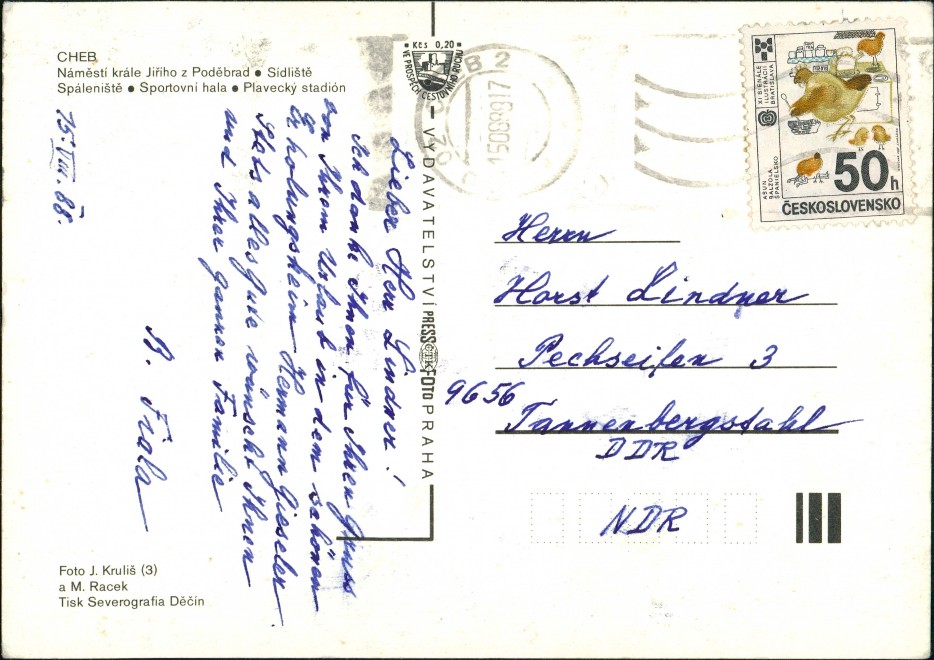 CHEB
Náměstí krále Jiřího z Poděbrad • Sídliště
Spáleniště • Sportovní hala • Plavecký stadión
15. VIII. 88.
Lieber Herr Lindner!
Ich danke Ihnen für Ihren Gruss
von Ihrem Urlaub in dem schönen
Erholungsheim Hermann Gieseler
Stets alles gute wünscht Ihnen
und Ihrer ganzen Familie
B. Fiala
Foto J. Kruliš (3)
a M. Racek
Tisk Severografia Děčín
Kčs 0,20
VE PROSPĚCH CESTOVNÍHO RUCHU
VYDAVATELSTVÍ PRESSFOTO PRAHA
ČTK
EB 2
XI BIENÁLE
ILUSTRÁCIÍ
BRATISLAVA
ASUN
BALZOLA
ŠPANIELSKO
50h
ČESKOSLOVENSKO
Herrn
Horst Lindner
Pechseifen 3
9656
Tannenbergsthal
DDR
NDR